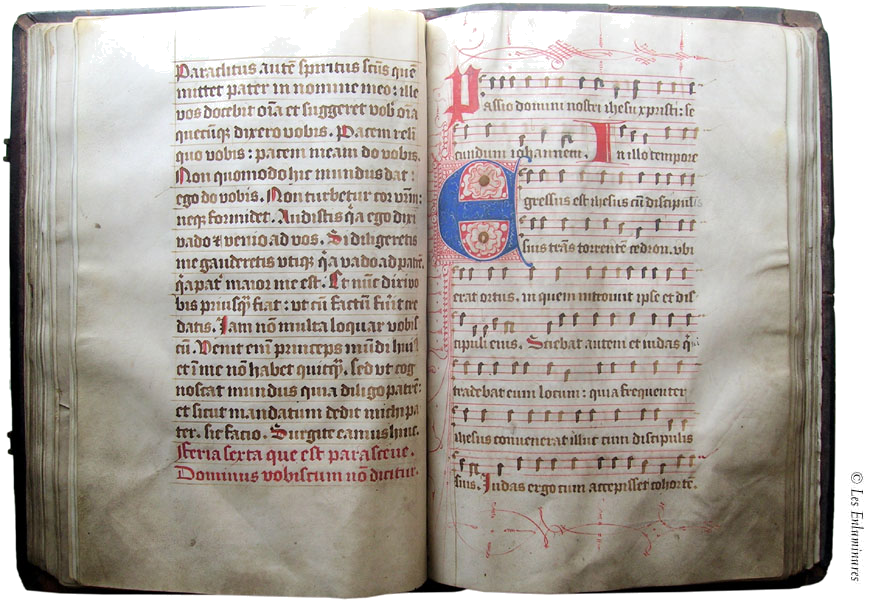 Paraclitus autē spiritus scūs quē
mittet pater in nomine meo: ille
vos docebit oīa et suggeret vob̄ oīa
quecūq̄ dixero vobis. Pacem reli
quo vobis: pacem meam do vobis.
Non quomodo hic mundus dat:
ego do vobis. Non turbetur cor v̄rm:
neq̄ formidet. Audistis q̄a ego dixi
vado & venio ad vos. Si diligeretis
me gauderetis vtiq̄ q̄a vado ad patrē.
q̄a pat̄ maior me est. Et nūc dixi vo
bis priusq̄ fiat: vt cū factū fu̅it cre
datis. Iam nō multa loquar vobis
cū. Venit enī princeps mūdi hui
et ī me nō habet quicq̄. sed vt cog
noscat mundus quia diligo patrē:
et sicut mandatum dedit michi pa
ter. sic facio. Surgite eamus hinc.
Feria sexta que est parasceue.
Dominus vobiscum nō dicitur.
Passio domini nostri ihesu xpristi: se
cundum iohannem. In illo tempore
Egressus est ihesus cū discipulis
suis trās torrentē cedron. vbi
erat ortus. in quem introiuit ipse et dis
cipuli eius. Sciebat autem et iudas q̄
tradebat eum locum: quia frequenter
ihesus conuenerat illuc cum discipulis
suis. Iudas ergo cum accepisset cohortē.
© Les Enluminures